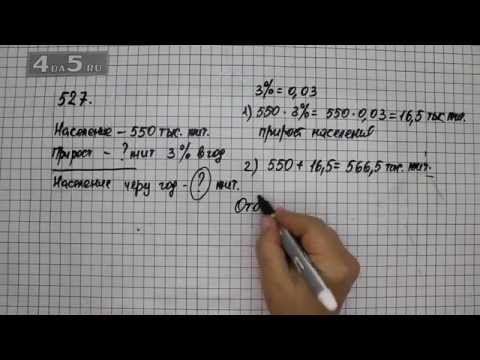 4DA5.RU
527.
Население – 550 тыс. жит.
Прирост – ? жит 3% в год
Население через год – ? жит.
3% = 0,03
1) 550 · 3% = 550 · 0,03 = 16,5 тыс. жит.
прирост населения
2) 550 + 16,5 = 566,5 тыс. жит.
Отв